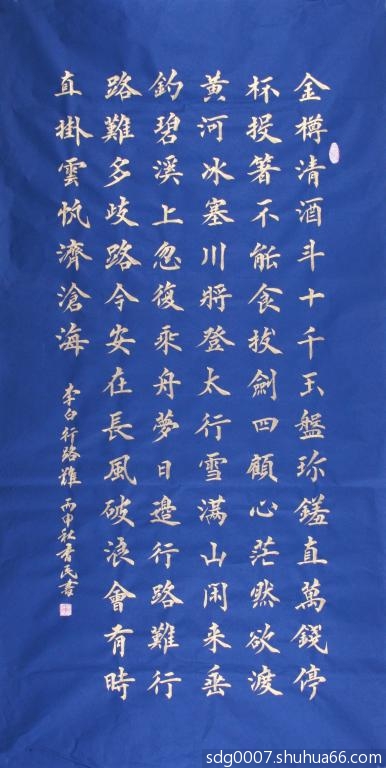 金樽清酒斗十千玉盤珎饈直萬錢停
杯投箸不能食拔劍四顧心茫然欲渡
黃河冰塞川將登太行雪滿山閑来垂
釣碧溪上忽復乘舟夢日邊行路難行
路難多歧路今安在長風破浪會有時
直掛雲帆濟滄海
李白行路難 丙申秋書民書
sdg0007.shuhua66.com